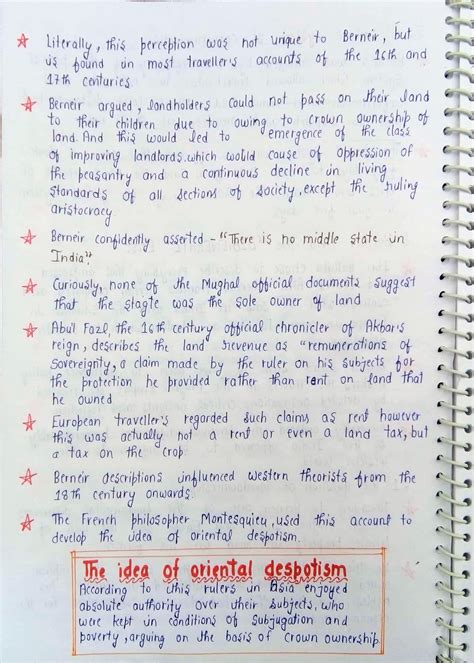 Literally, this perception was not unique to Berneir, but
is found in most traveller's accounts of the 16th and
17th centuries
Berneir argued, landholders could not pass on their land
to their children due to owing to crown ownership of
land. And this would led to emergence of the class
of improving landlords. which would cause of oppression of
the peasantry and a continuous decline in living
standards of all sections of society, except the ruling
aristocracy
Berneir confidently asserted - "There is no middle state in
India"
Curiously, none of the Mughal official documents suggest
that the stagte was the sole owner of land
Abu'l Fazl, the 16th century official chronicler of Akbar's
reign, describes the land revenue as "remunerations of
Sovereignty, a claim made by the ruler on his subjects for
the protection he provided rather than rent on land that
he owned
European traveller's regarded such claims as rent however
this was actually not a rent or even a land tax, but
a tax on the crop
Berneir descriptions influenced western theorists from the
18th century onwards.
The French philosopher Montesquieu, used this account to
develop the idea of oriental despotism.
The idea of oriental despotism
According to this rulers in Asia enjoyed
absolute authority over their subjects, who
were kept in conditions of subjugation and
poverty, arguing on the basis of crown ownership.